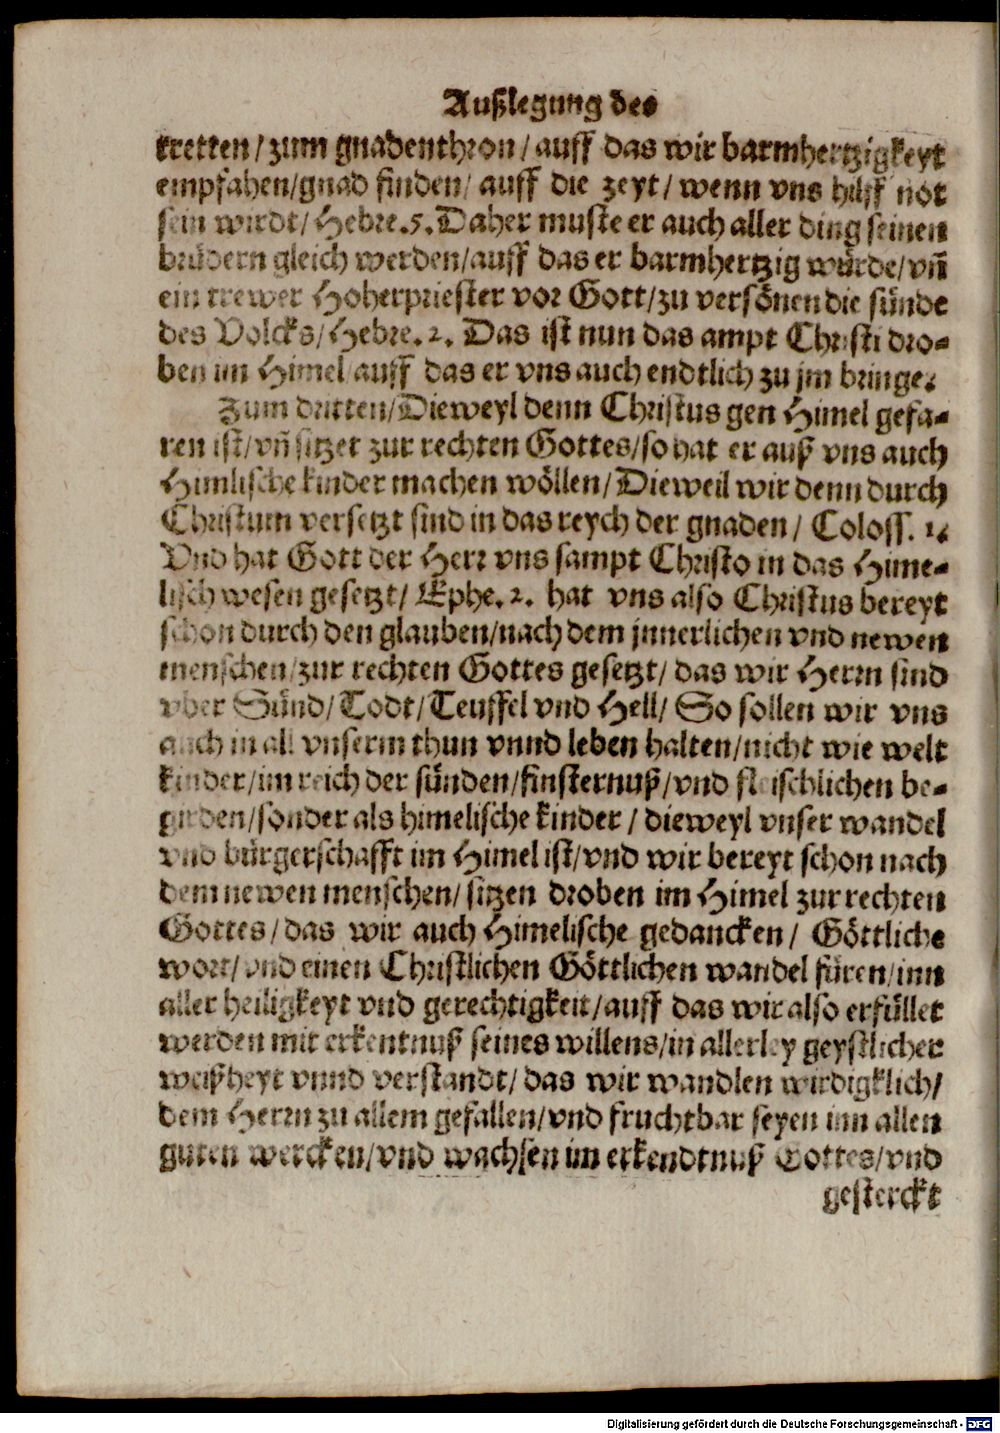 Außlegung des
tretten/zum gnadenthron/auff das wir barmhertzigkeyt
empfahen/gnad finden/auff die zeyt/wenn vns hilff not
sein wirdt/Hebre.5. Daher muste er auch aller ding seinen
brüdern gleich werden/auff das er barmhertzig würde/vñ
ein trewer Hoherpriester vor Gott/zu versönen die sünde
des Volcks/Hebre.2. Das ist nun das ampt Christi dro-
ben im Himel auff das er vns auch endtlich zu jm bringe.
Zum dritten/Dieweyl denn Christus gen Himel gefa-
ren ist/vñ sitzet zur rechten Gottes/so hat er auß vns auch
Himlische kinder machen wöllen/Dieweil wir denn durch
Christum versetzt sind in das reych der gnaden/Coloss.1.
Vnd hat Gott der Herr vns sampt Christo in das Hime-
lisch wesen gesetzt/Ephe.2. hat vns also Christus bereyt
schon durch den glauben/nach dem jnnerlichen vnd newen
menschen/zur rechten Gottes gesetzt/das wir Herrn sind
vber Sünd/Todt/Teuffel vnd Hell/So sollen wir vns
auch in all vnserm thun vnnd leben halten/nicht wie welt
kinder/im reich der sünden/finsternuß/vnd fleischlichen be-
girden/sonder als himelische kinder/dieweyl vnser wandel
vnd bürgerschafft im Himel ist/vnd wir bereyt schon nach
dem newen menschen/sitzen droben im Himel zur rechten
Gottes/das wir auch Himelische gedancken/Göttliche
wort/vnd einen Christlichen Göttlichen wandel füren/inn
aller heiligkeyt vnd gerechtigkeit/auff das wir also erfüllet
werden mit erkentnuß seines willens/in allerley geystlicher
weißheyt vnnd verstandt/das wir wandlen wirdigklich/
dem Herrn zu allem gefallen/vnd fruchtbar seyen inn allen
guten wercken/vnd wachsen im erkendtnuß Gottes/vnd
gesterckt
Digitalisierung gefördert durch die Deutsche Forschungsgemeinschaft - DFG